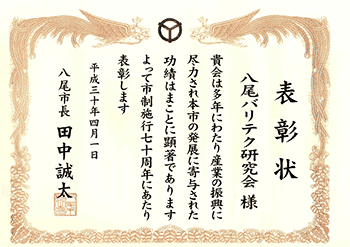 表彰状
八尾バリテク研究会 様
貴会は多年にわたり産業の振興に
尽力され本市の発展に寄与された
功績はまことに顕著であります
よって市制施行七十周年にあたり
表彰します
平成三十年四月一日
八尾市長 田中誠太